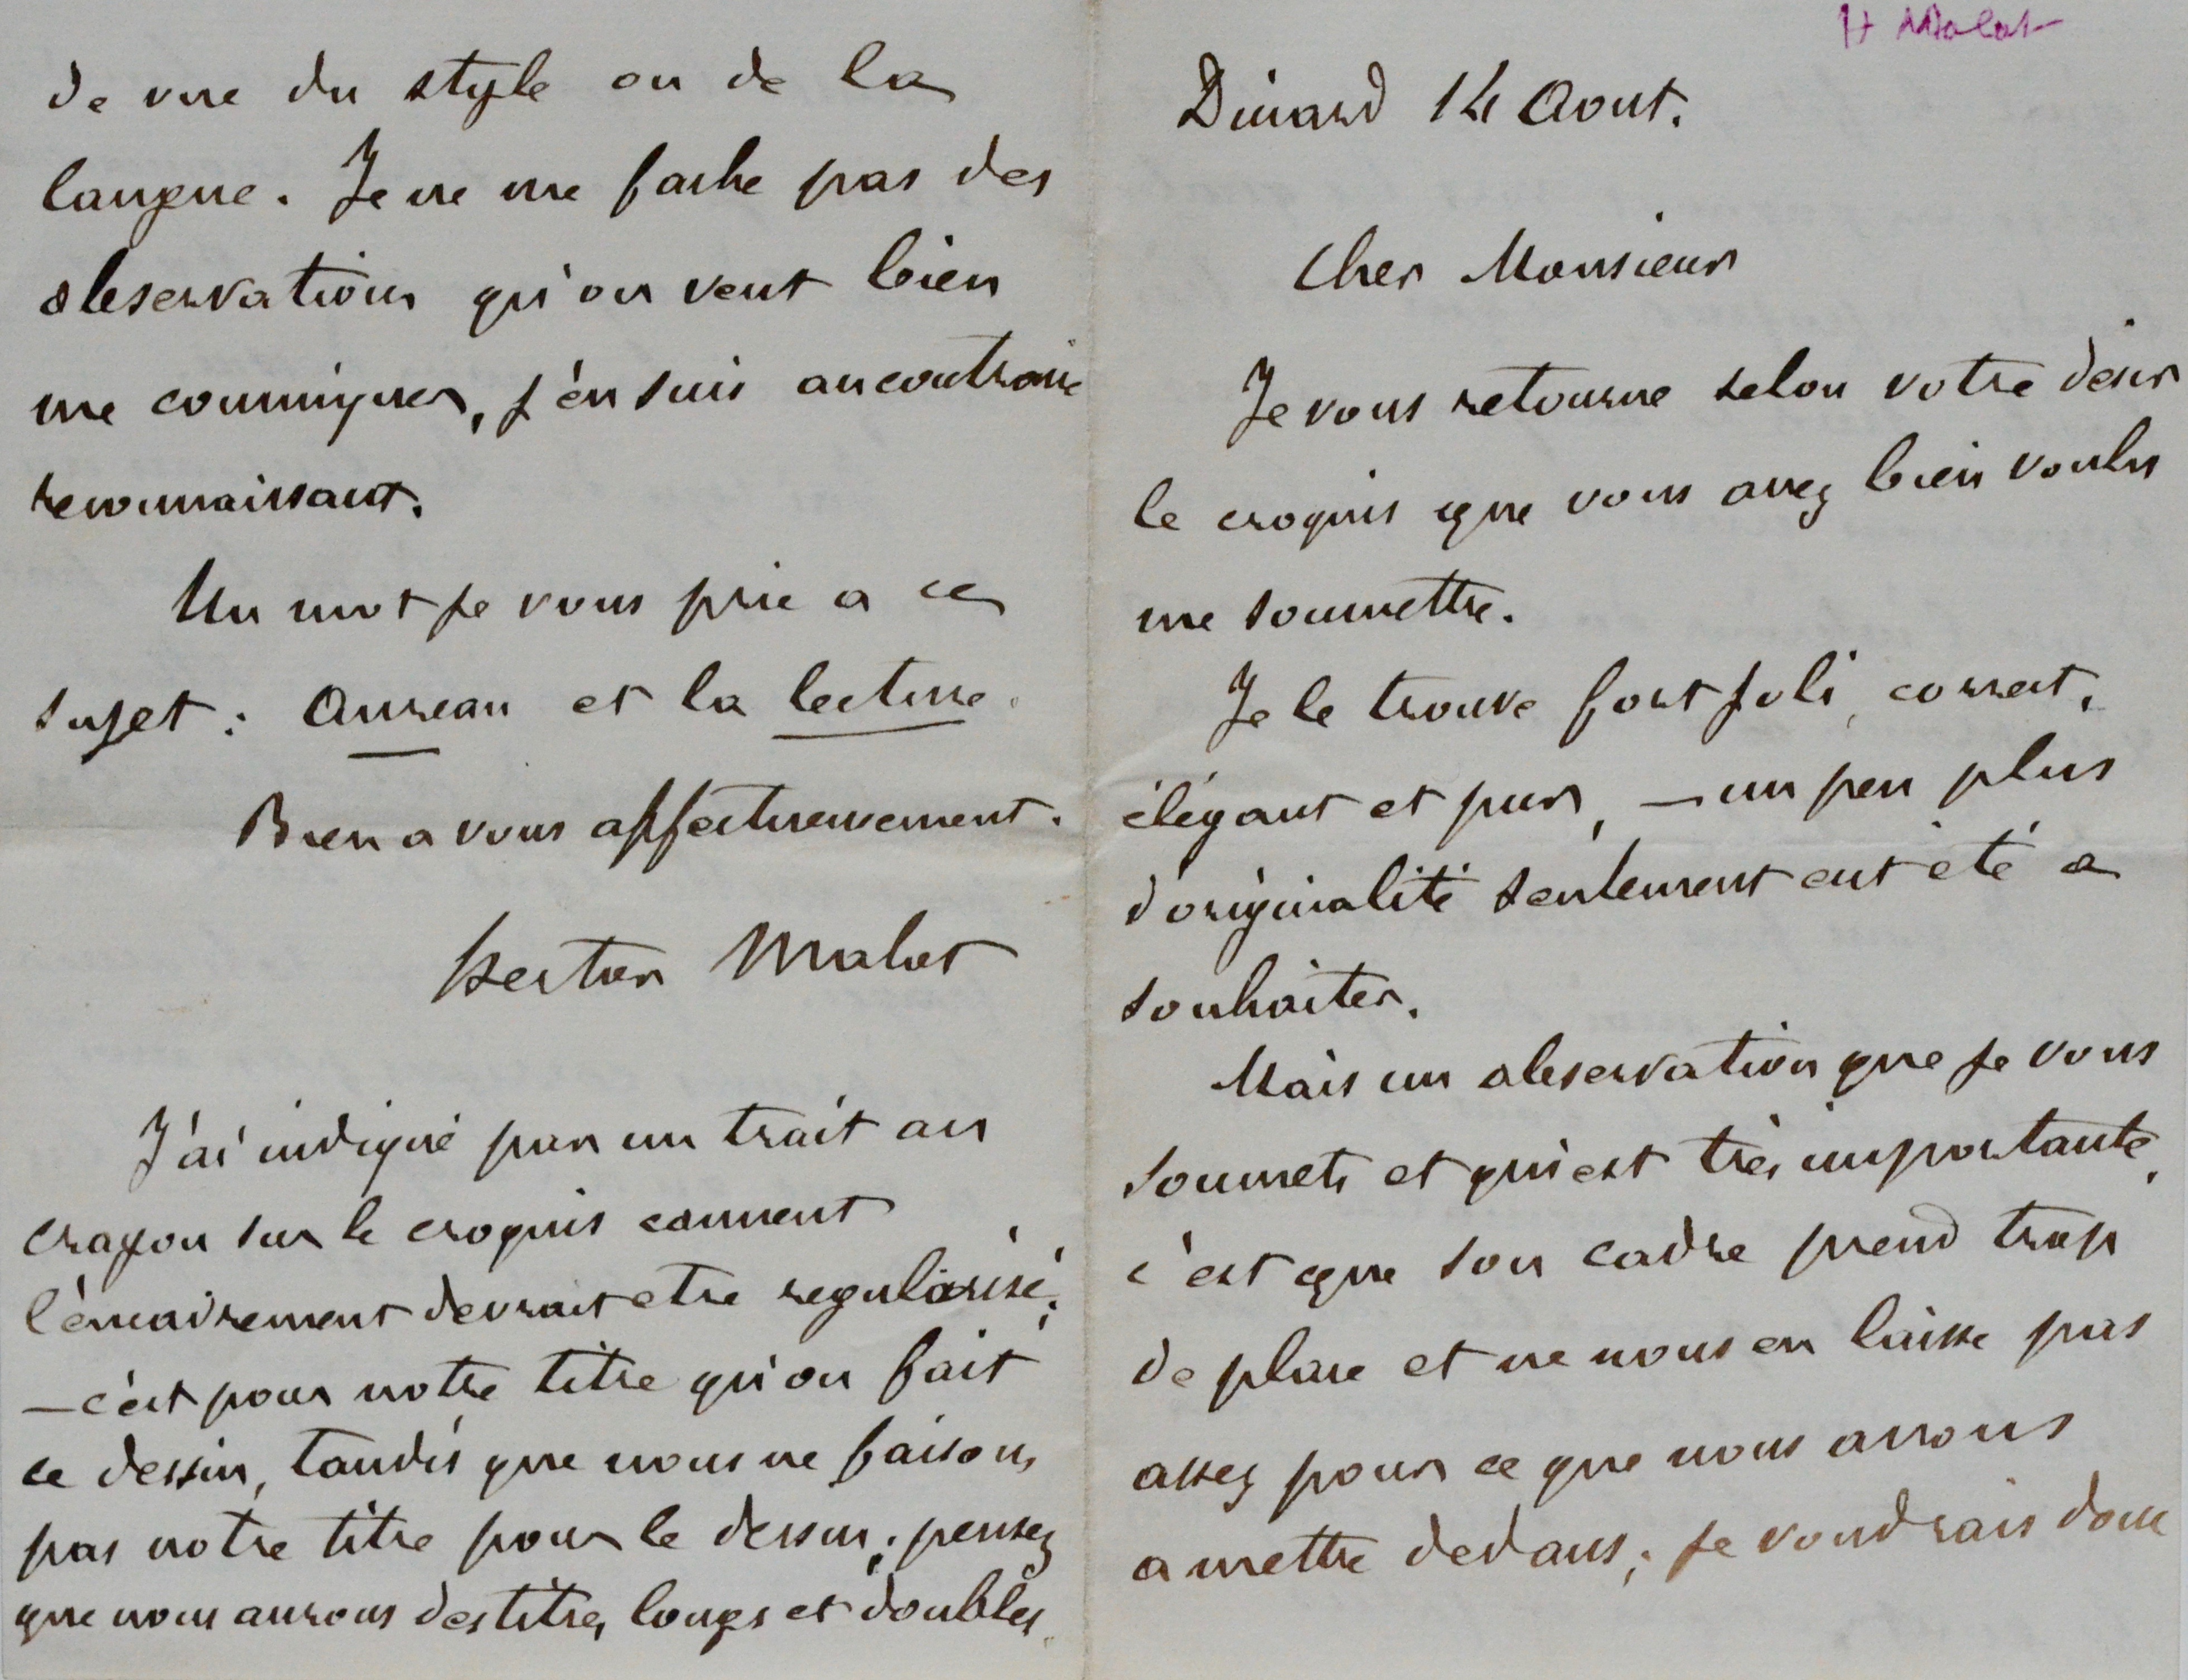 H Malot
Dinard 14 Aout.
Cher Monsieur
Je vous retourne selon votre desir
le croquis que vous avez bien voulu
me soumettre.
Je le trouve fort joli, correct,
élégant et pur, — un peu plus
d'originalité seulement eut été a
souhaiter.
Mais un observation que je vous
soumets et qui est très importante,
c'est que son cadre prend trop
de place et ne nous en laisse pas
assez pour ce que nous avons
a mettre dedans; je voudrais donc
de vue du style ou de la
langue. Je ne me fache pas des
observations qu'on veut bien
me communiquer, j'en suis au contraire
reconnaissant.
Un mot je vous prie a ce
sujet: Aureau et la lecture.
Bien a vous affectueusement.
Hector Malot
J'ai indiqué par un trait au
crayon sur le croquis comment
l'encadrement devrait etre regularisé;
— c'est pour notre titre qu'on fait
ce dessin, tandis que nous ne faisons
pas notre titre pour le dessin; pensez
que nous aurons des titres longs et doubles.